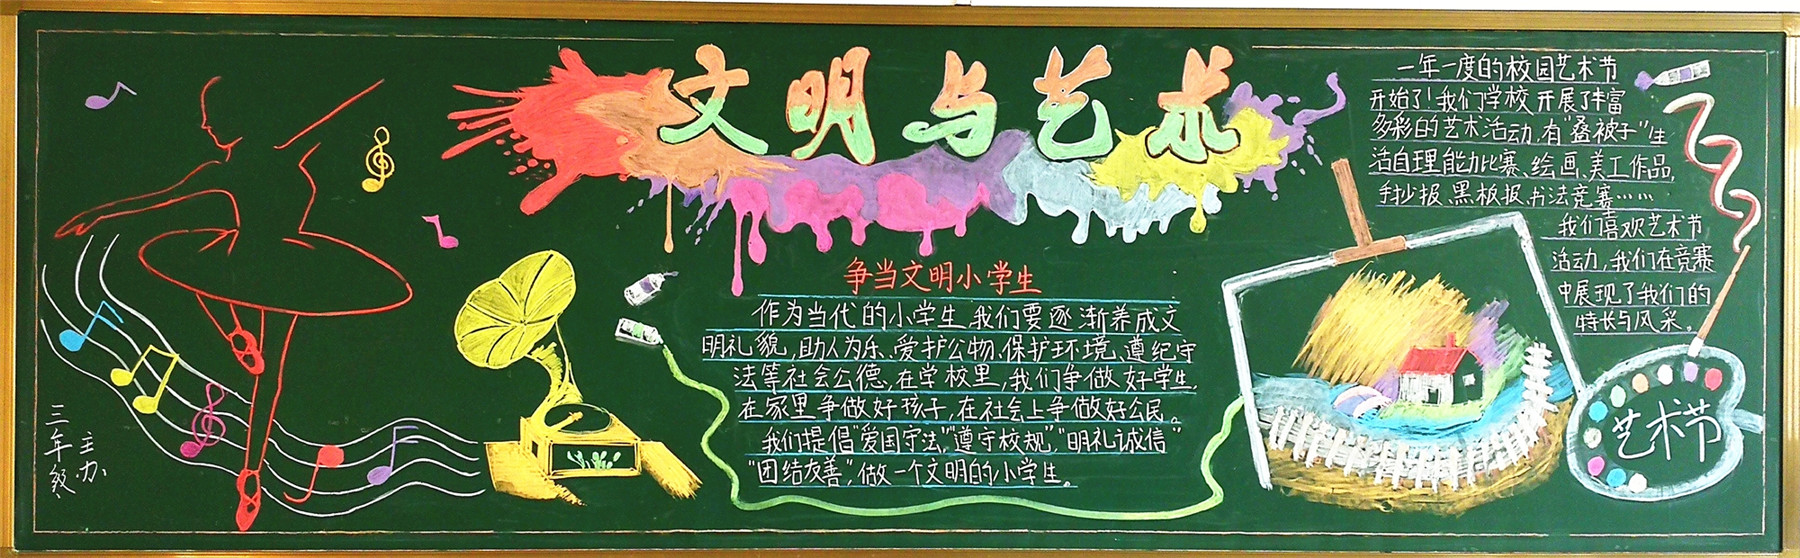 文明与艺术
争当文明小学生
作为当代的小学生,我们要逐渐养成文
明礼貌,助人为乐、爱护公物、保护环境、遵纪守
法等社会公德,在学校里,我们争做好学生,
在家里争做好孩子,在社会上争做好公民。
我们提倡“爱国守法”,“遵守校规”,“明礼诚信”
“团结友善”,做一个文明的小学生。
一年一度的校园艺术节
开始了!我们学校开展了丰富
多彩的艺术活动,有“叠被子”生
活自理能力比赛、绘画、美工作品,
手抄报、黑板报、书法竞赛……
我们喜欢艺术节
活动,我们在竞赛
中展现了我们的
特长与风采。
艺术节
三年级
主办